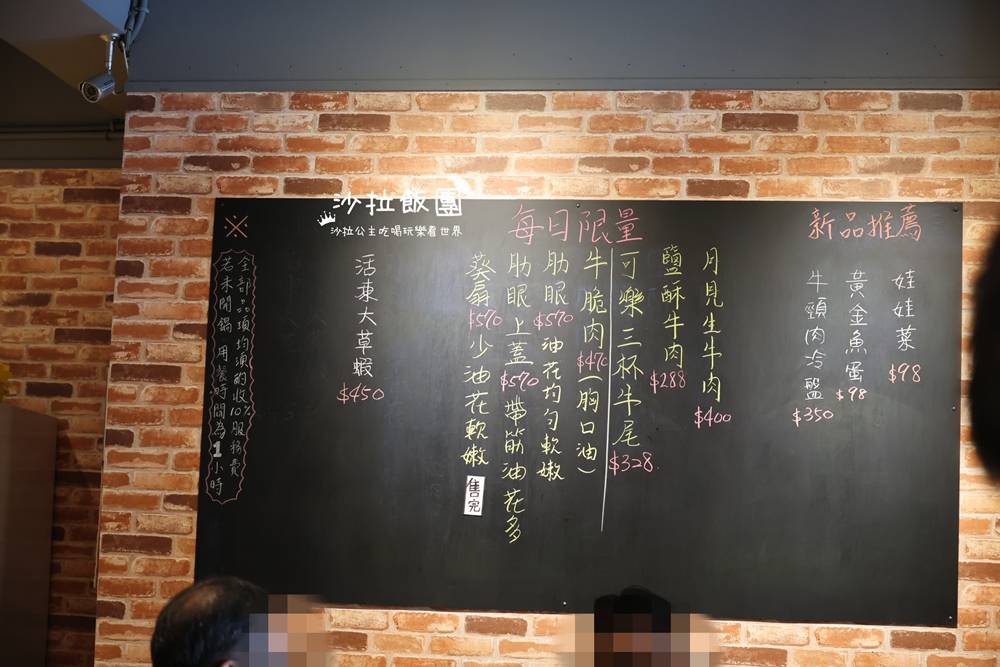 沙拉飯團
沙拉公主吃喝玩樂看世界
新品推薦
娃娃菜 $98
黃金魚蛋 $98
牛頸肉冷盤 $350
每日限量
月見生牛肉 $400
鹽酥牛肉 $288
可樂三杯牛尾 $328
牛脆肉 $470 (胸口油)
肋眼 $570 油花均勻軟嫩
肋眼上蓋 $570 帶筋油花多
葵扇 $570 少油花軟嫩
售完
活東大草蝦 $450
※
全部品項均須酌收10%服務費
若未開鍋 用餐時間為1小時